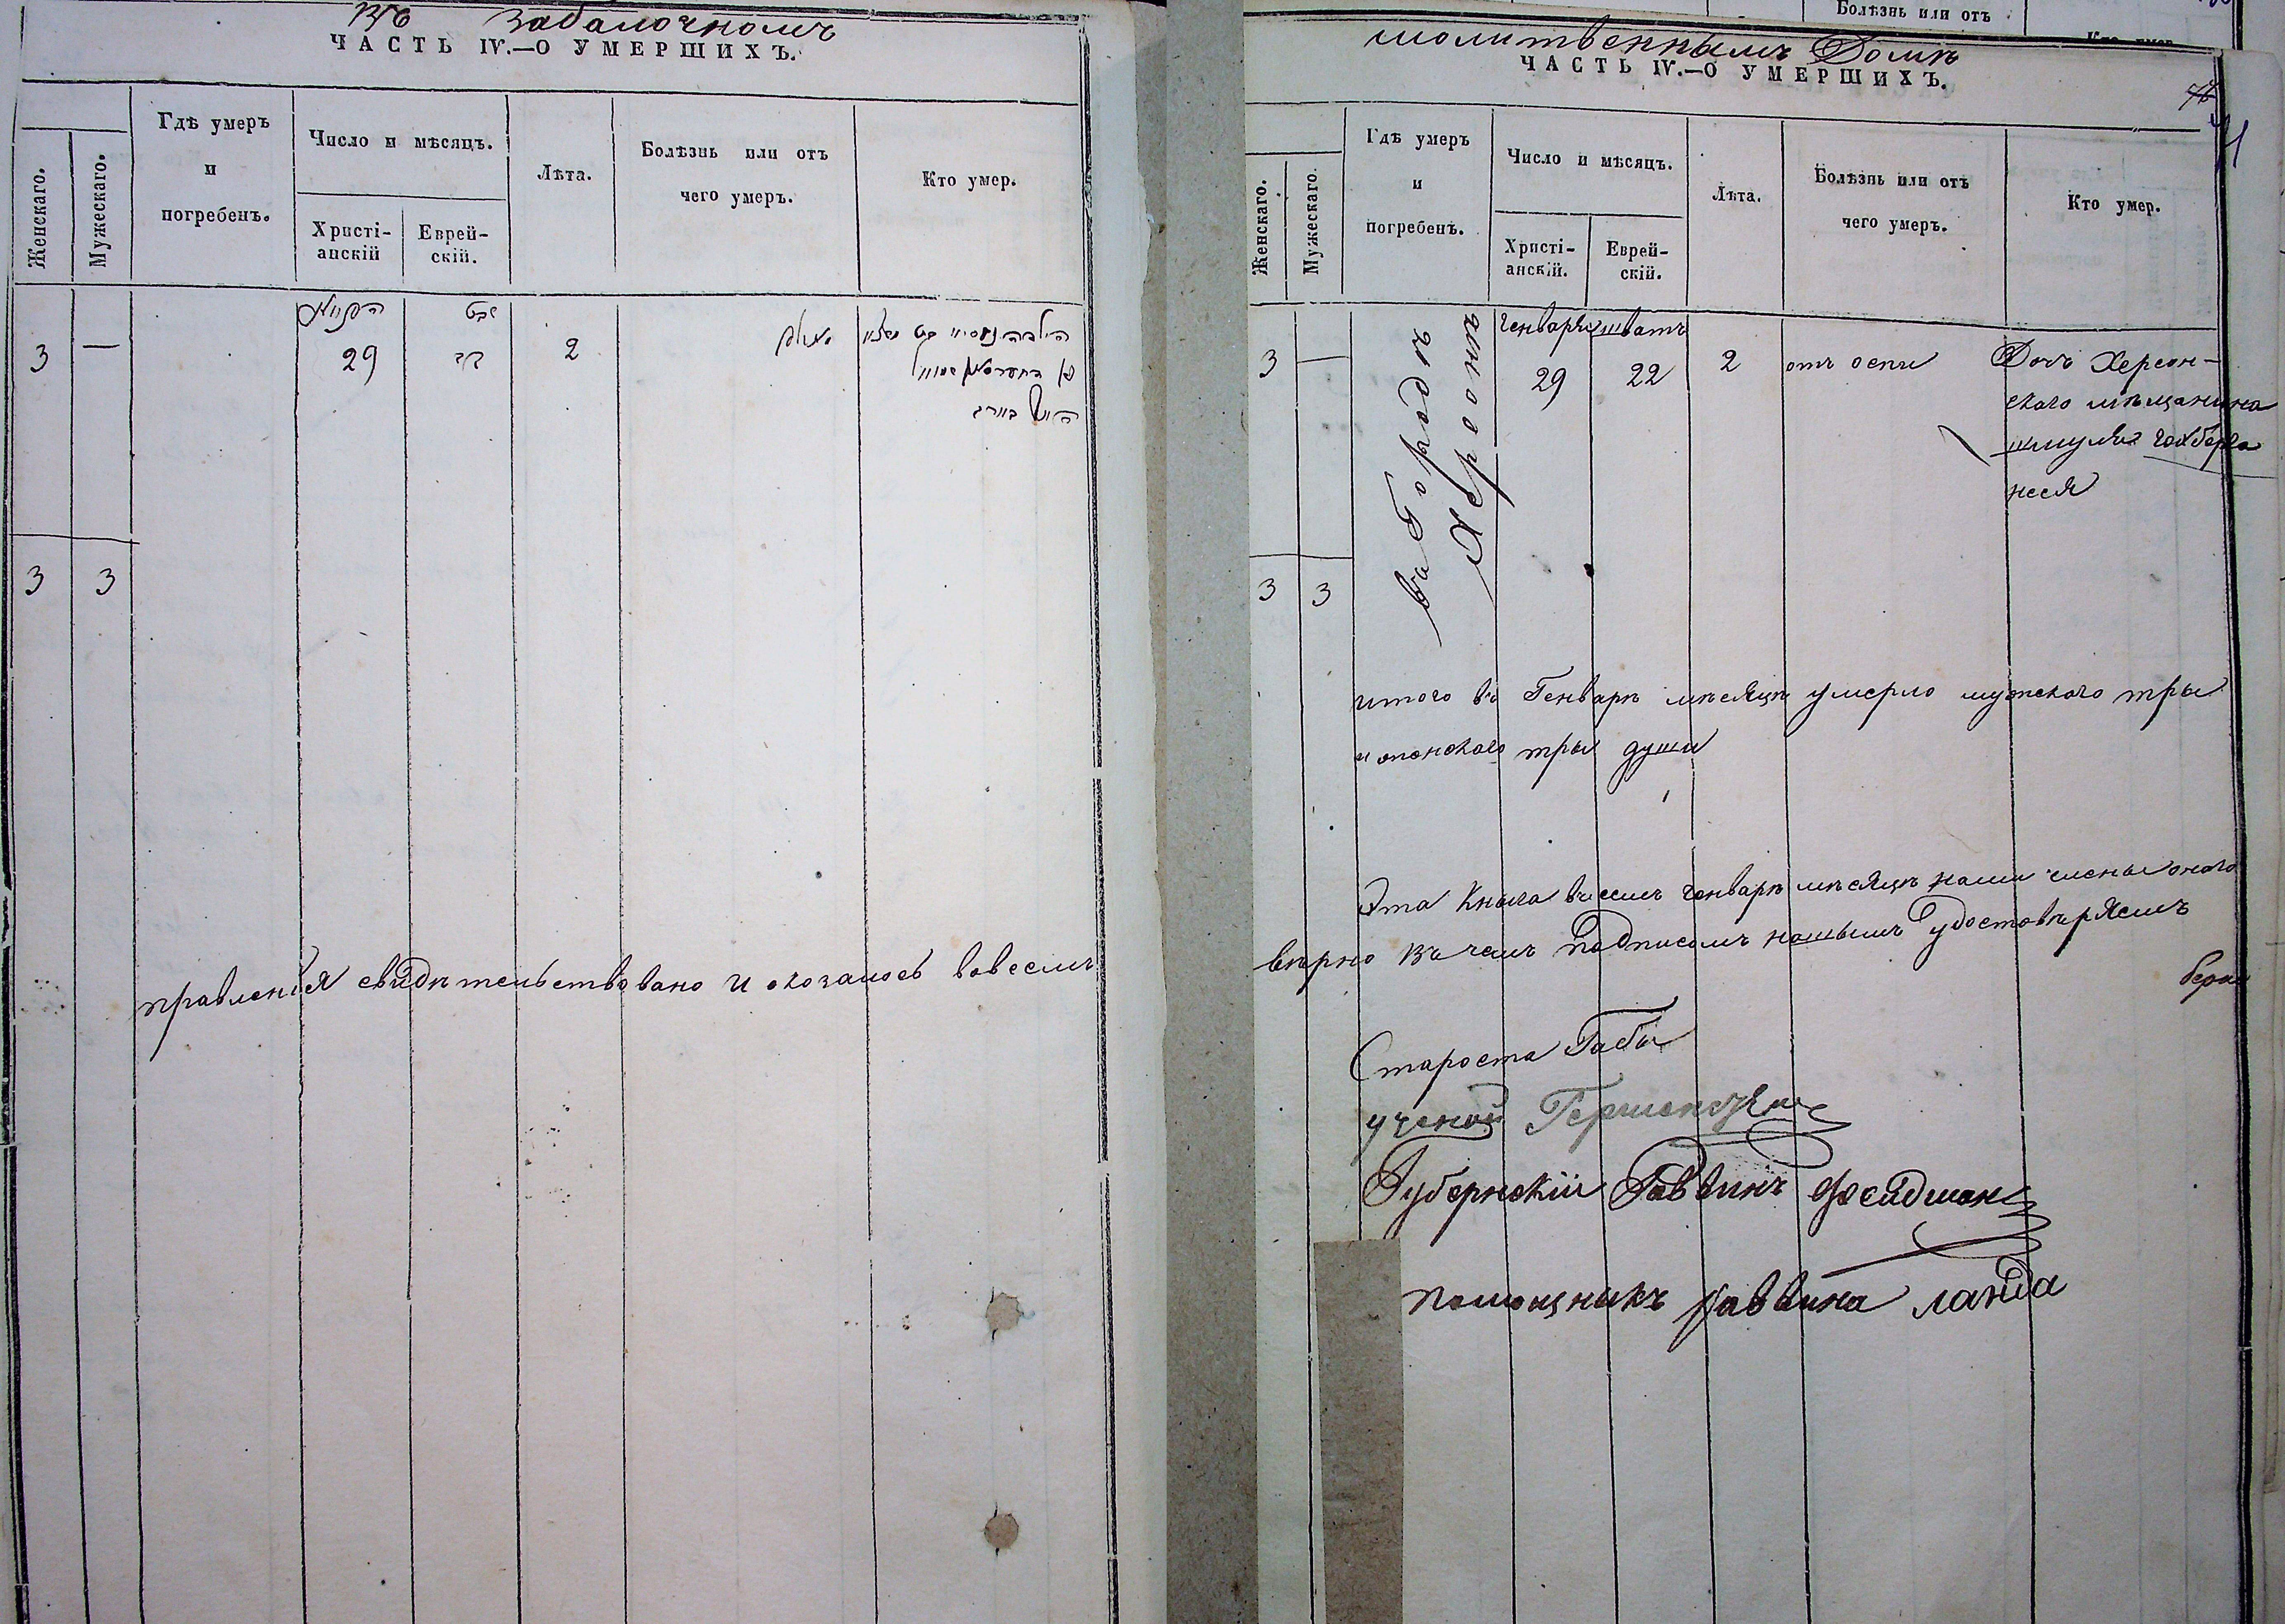 Въ забалочномъ
ЧАСТЬ IV.—О УМЕРШИХЪ.
Женскаго.
Мужескаго.
Гдѣ умеръ
и
погребенъ.
Число и мѣсяцъ.
Христі-
анскій
Еврей-
скій.
Лѣта.
Болѣзнь или отъ
чего умеръ.
Кто умер.
שבט
3 — 29 כב 2
3 3
правленія свидѣтельствовано и оказалось вовсемъ
Болѣзнь или отъ
молитвеннымъ Домѣ
ЧАСТЬ IV.—О УМЕРШИХЪ.
Женскаго.
Мужескаго.
Гдѣ умеръ
и
погребенъ.
Число и мѣсяцъ.
Христі-
анскій.
Еврей-
скій.
Лѣта.
Болѣзнь или отъ
чего умеръ.
Кто умер.
въ Городѣ
Херсонѣ
Генваря шватъ
3 — 29 22 2 отъ оспи Дочъ Херсон-
скаго мѣщанина
шмуля
неся
3 3
итого въ Генварѣ мѣсяцѣ умерло мужскаго тры
и женскаго тры души
Эта Кныга въ семъ генварѣ мѣсяцѣ нами члены онаго
вѣрно въ чемъ Подписомъ нашымъ Удостовѣряемъ
Староста
ученой
Губернскій Раввинъ Фейдман
помощныкъ раввина ланда